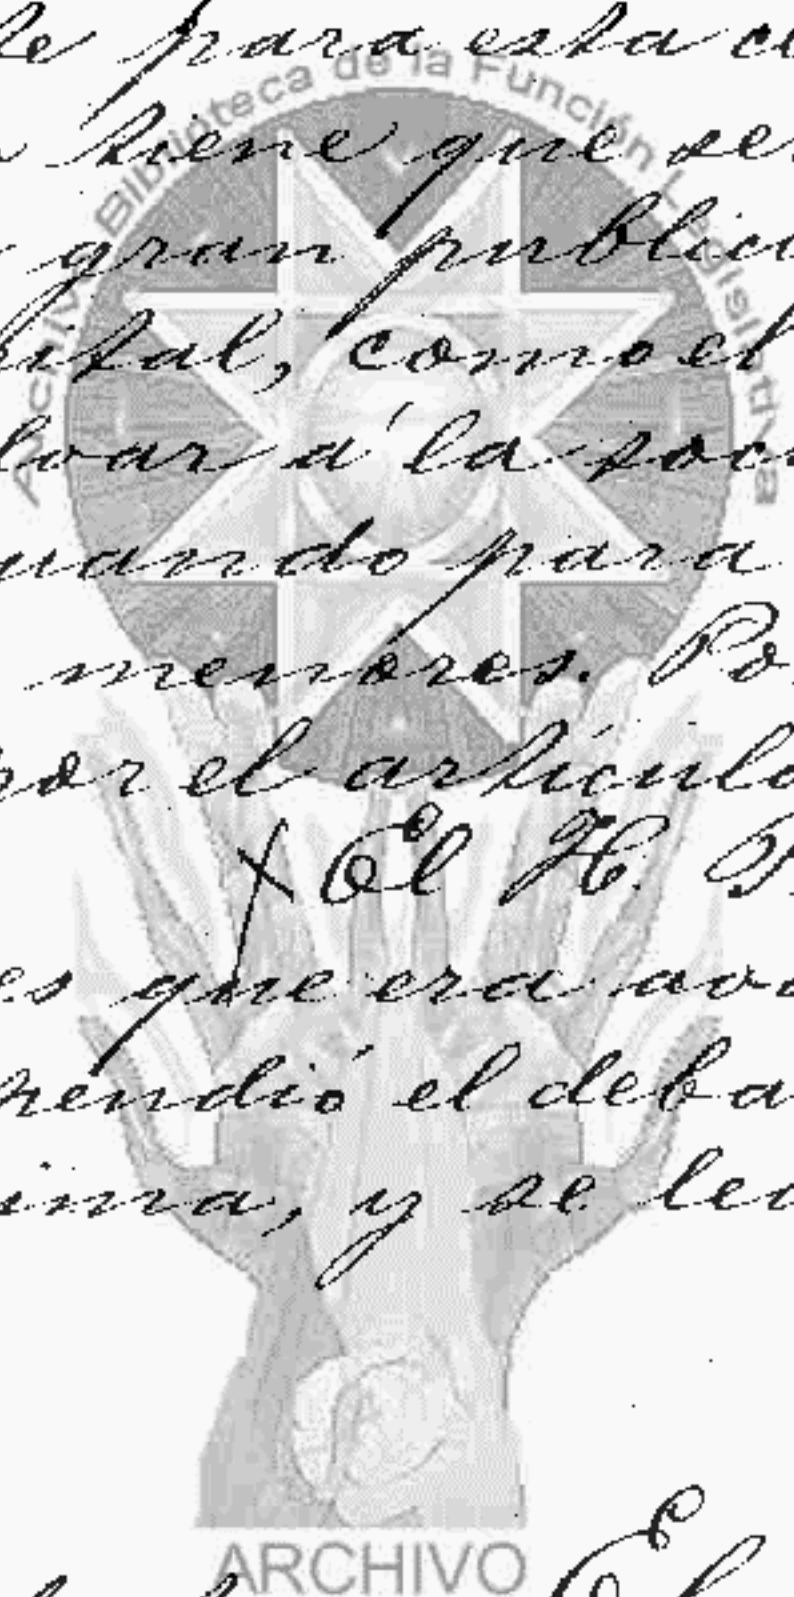 para esta
Archivo Biblioteca de la Función Legislativa
tiene que ser
gran public
pital, como el
loar á la soc
uando para
menores. Po
por el artículo
El H. P
es que era
rendió el deba
ima, y se le
ARCHIVO
El